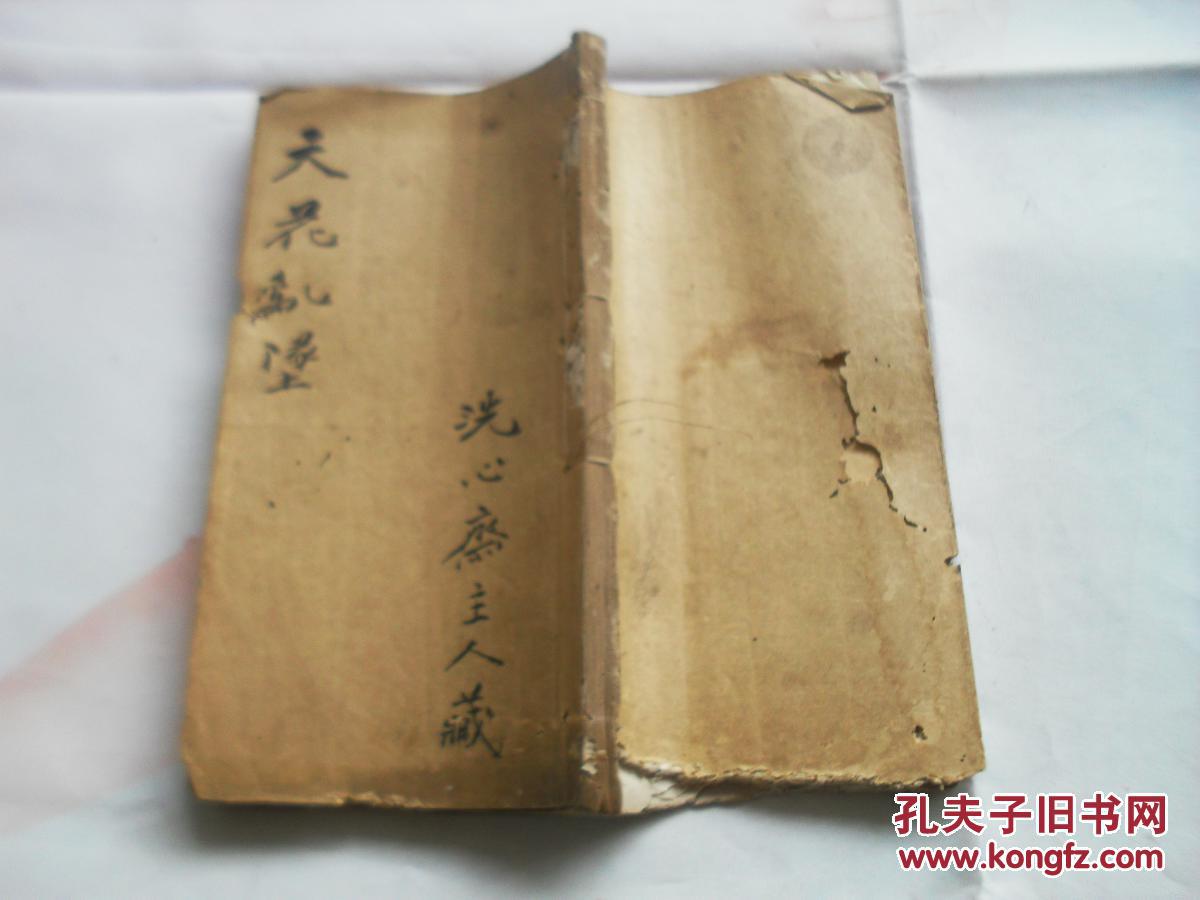 天花亂墜
洗心齋主人藏
孔夫子旧书网
www.kongfz.com